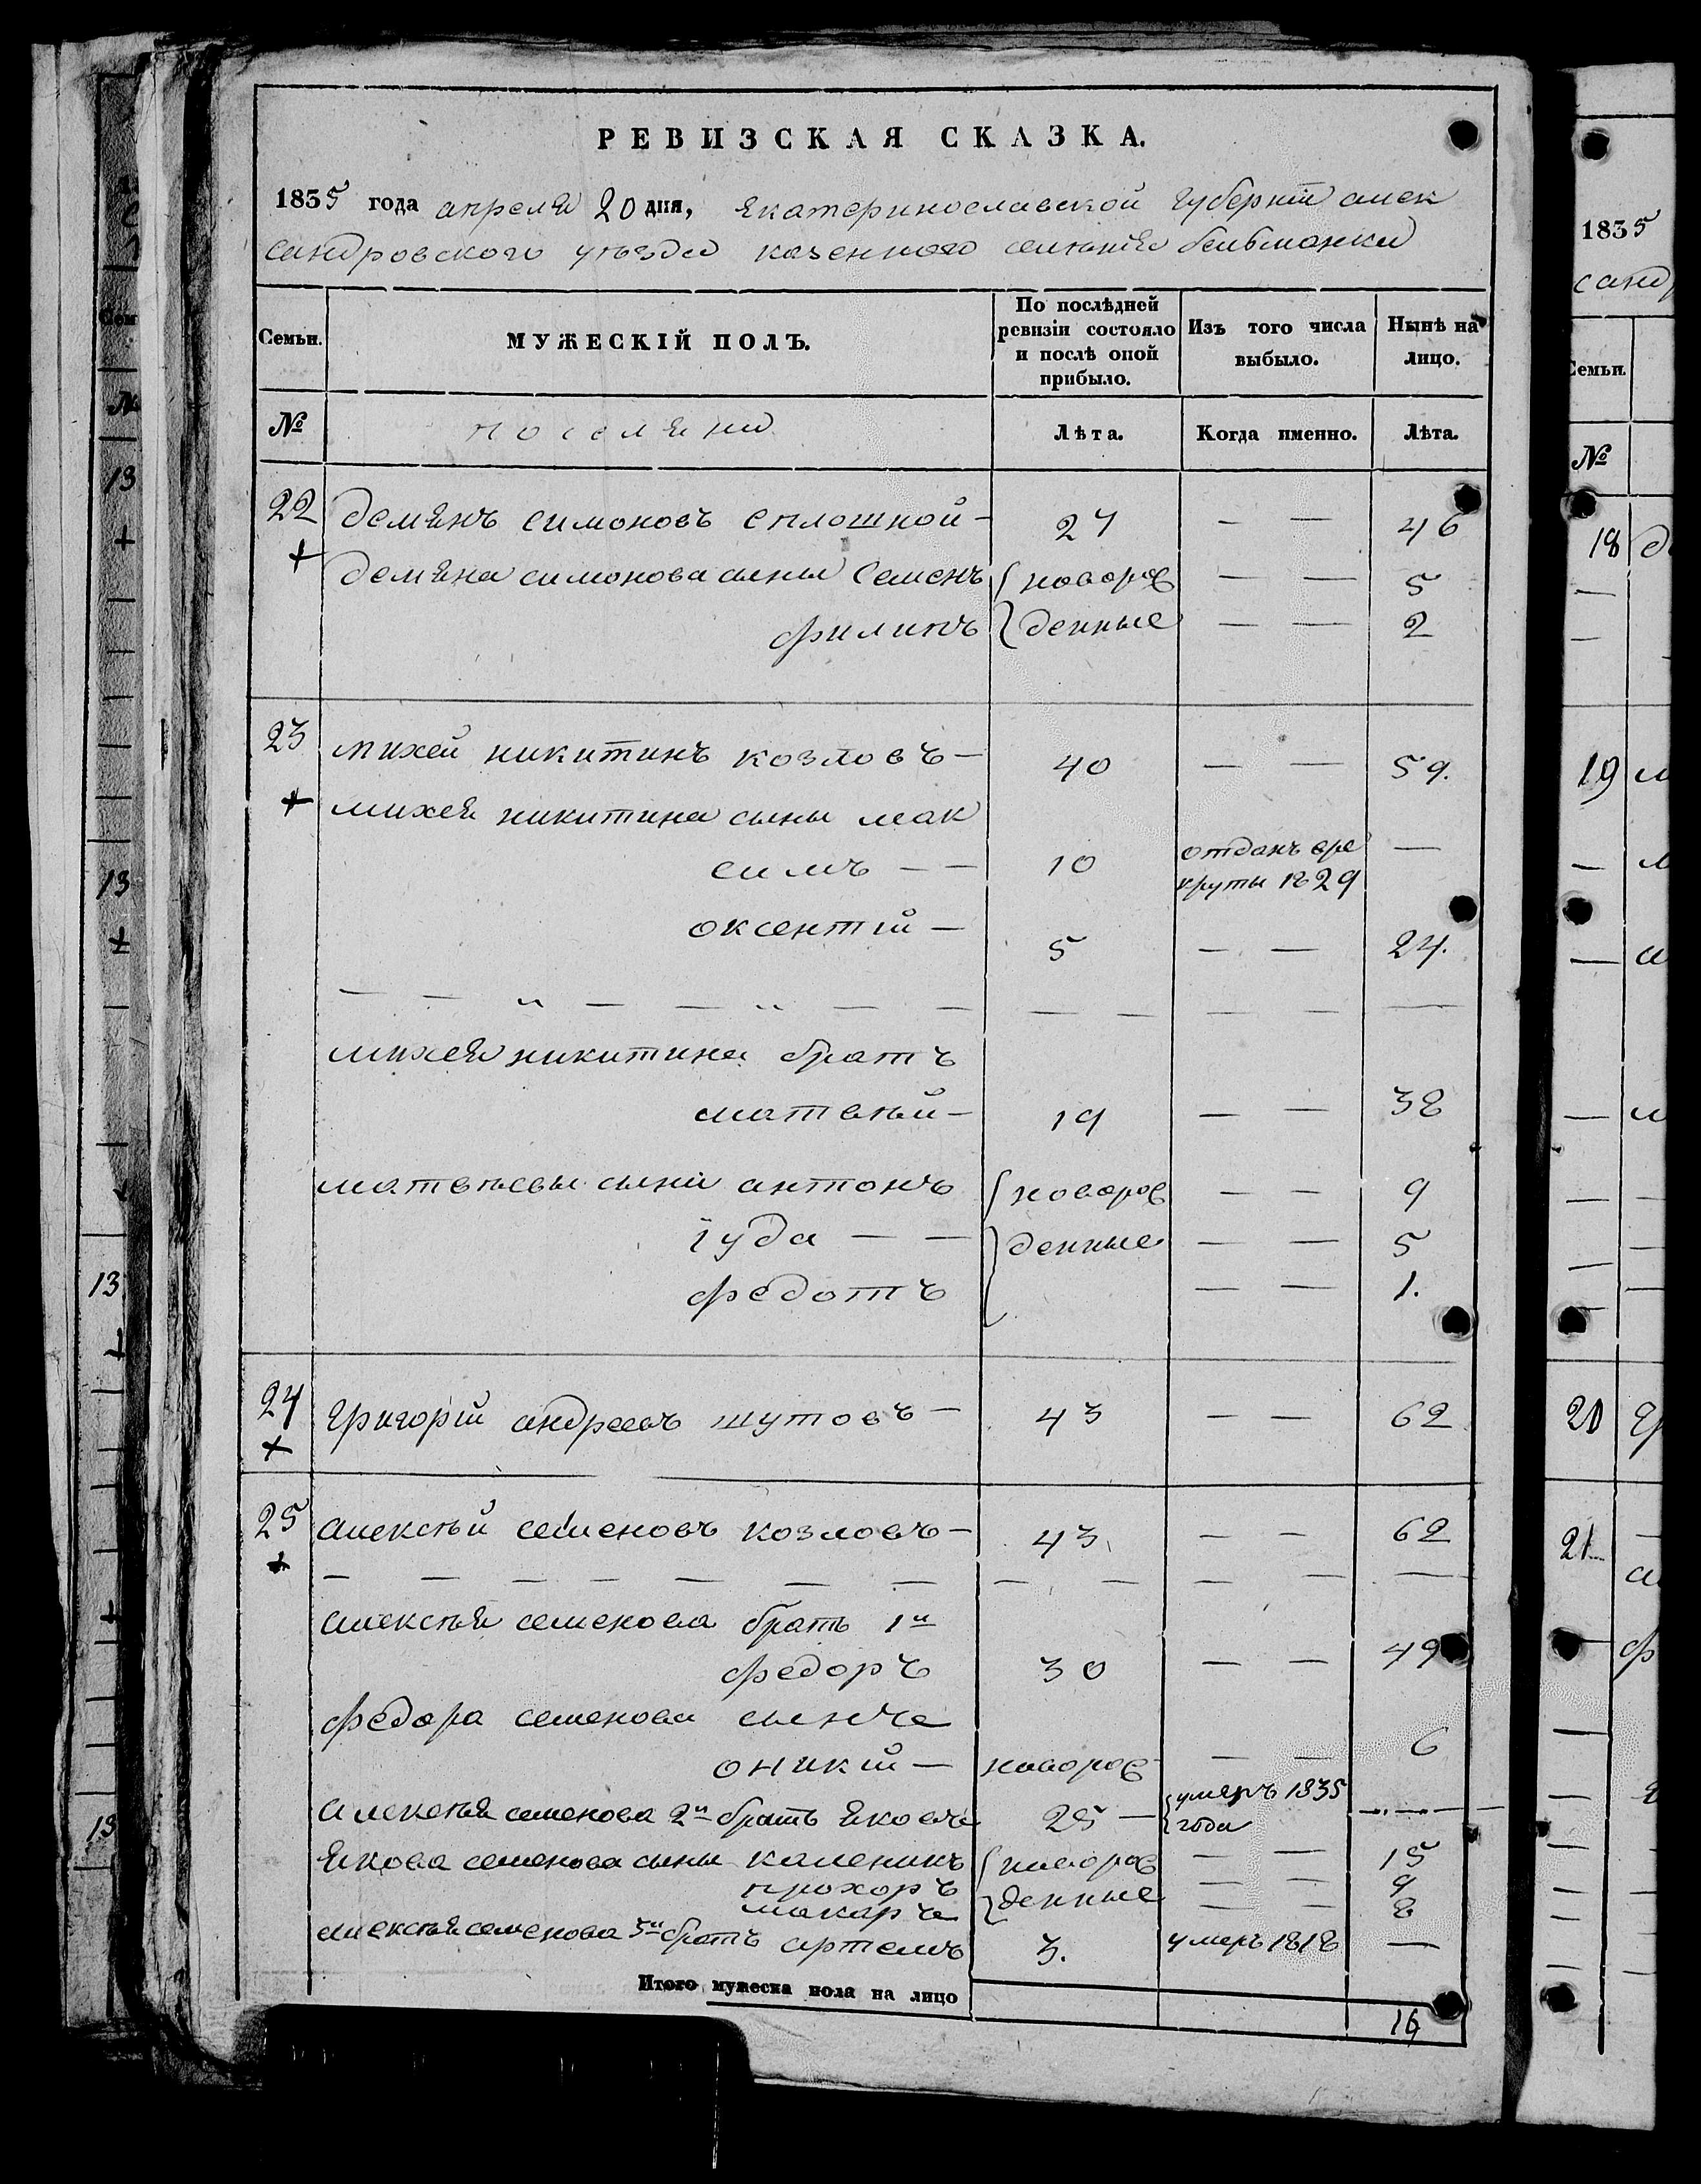 РЕВИЗСКАЯ СКАЗКА.
1835 года апреля 20 дня, Екатеринославской губернiи алек
сандровского уѣзда казенного селѣнiя бельманки
Семьи. МУЖЕСКІЙ ПОЛЪ. По послѣдней ревизіи состояло и послѣ оной прибыло. Изъ того числа выбыло. Нынѣ на лицо.
№ поселяни Лѣта. Когда именно. Лѣта.
22 демянъ симоновъ сплошной — 27 — — 46
+ демяна симонова сыны Семенъ новорож — — 5
филипъ денные — — 2
23 михей никитинъ козловъ — 40 — — 59.
+ михея никитина сыны мак
симъ — — 10 отданъ вре круты 1829 —
оксентiй — 5 — — 24.
михея никитина братъ
матвѣй — 19 — — 38
матвѣевы сыни антонъ новорож — — 9
iуда — — денные — — 5
федотъ — — 1.
24 григорiй андреевъ шутовъ — 43 — — 62
+
25 алексѣй семеновъ козловъ — 43 — — 62
+
алексѣя семенова братъ 1й
федоръ 30 — — 49
федора семенова сынъ
оникiй — новорож — — 6
алексѣя семенова 2й братъ яковъ 25 — умеръ 1835 года
якова семенова сыны каленикъ новорож — — 15
прохоръ денные — — 9
макаръ — — 8
алексѣя семенова 3й братъ артемъ 3. умеръ 1818 —
Итого мужеска пола на лицо
16
1835
санд
Семьи.
№
18
19
20
21
13
13
13
13